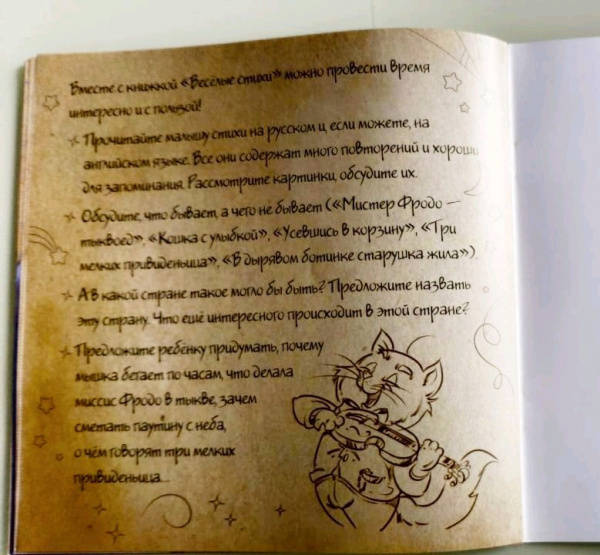 Вместе с книжкой «Весёлые стихи» можно провести время
интересно и с пользой!
Прочитайте малышу стихи на русском и, если можете, на
английском языке. Все они содержат много повторений и хороши
для запоминания. Рассмотрите картинки, обсудите их.
Обсудите, что бывает, а чего не бывает («Мистер Фродо —
тыквоед», «Кошка с улыбкой», «Усевшись в корзину», «Три
мелких привиденьица», «В дырявом ботинке старушка жила»).
А в какой стране такое могло бы быть? Предложите назвать
эту страну. Что ещё интересного происходит в этой стране?
Предложите ребёнку придумать, почему
мышка бегает по часам, что делала
миссис Фродо в тыкве, зачем
сметать паутину с неба,
о чём говорят три мелких
привиденьица...